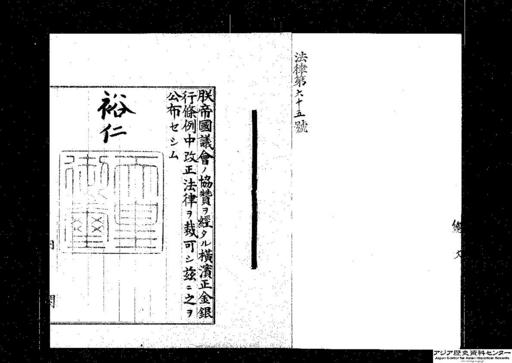 法律第六十五號
朕帝國議會ノ協贊ヲ經タル橫濱正金銀
行條例中改正法律ヲ裁可シ玆ニ之ヲ
公布セシム
裕仁
アジア歴史資料センター
Japan Center for Asian Historical Records